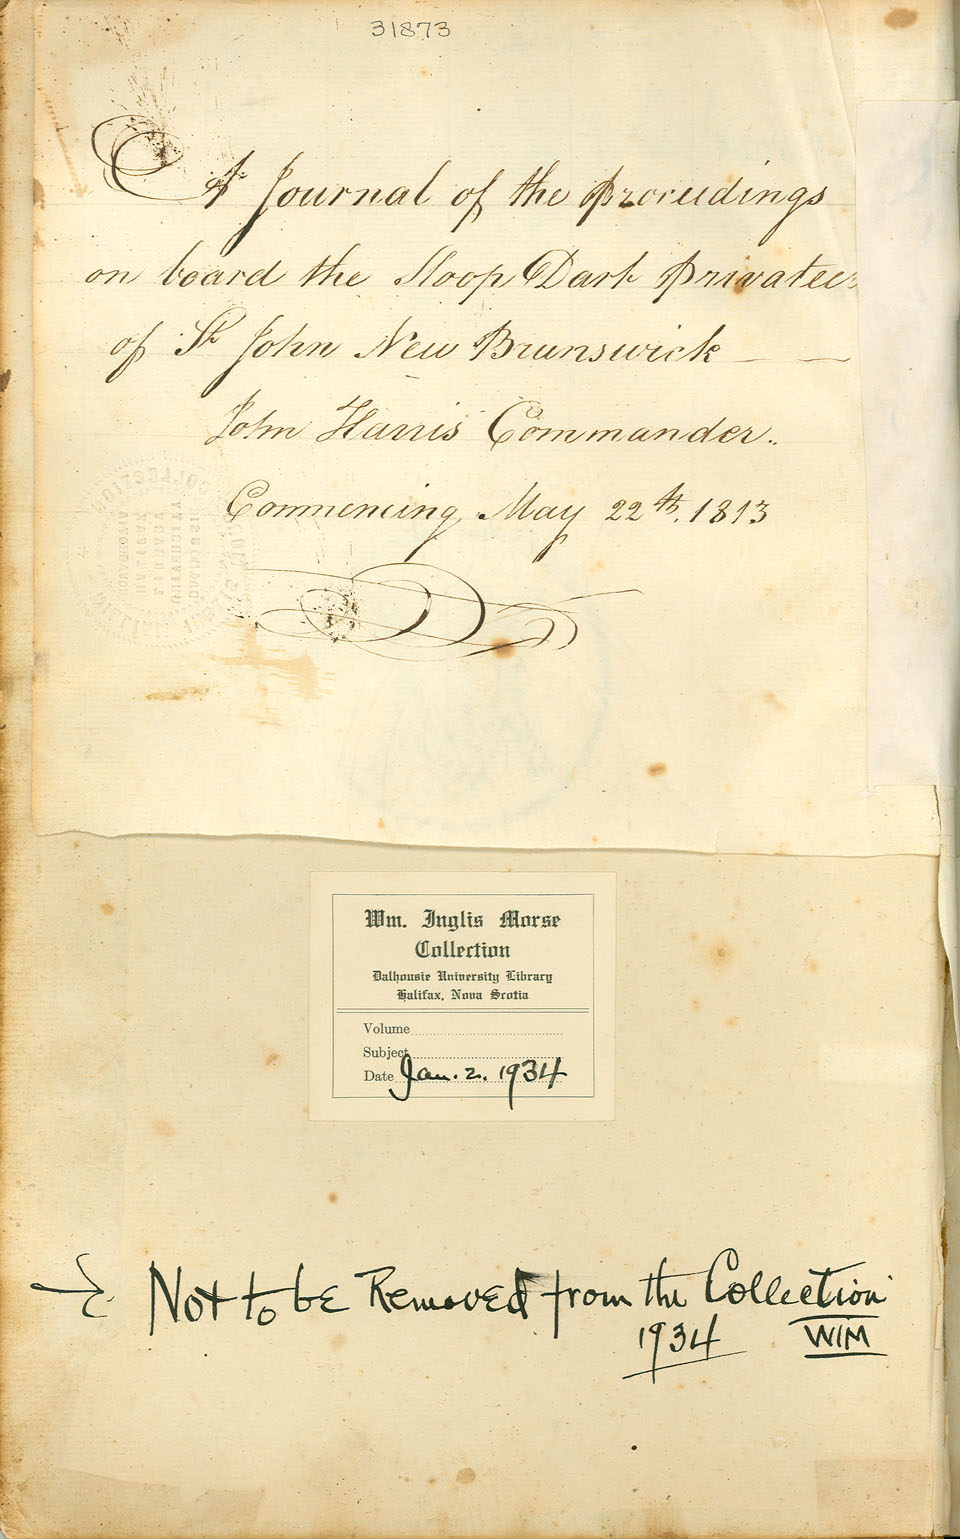 31873
A Journal of the Proceedings
on board the Sloop Dart Privateer
of St John New Brunswick
John Harris Commander.
Commencing May 22th. 1813
Wm. Inglis Morse
Collection
Dalhousie University Library
Halifax, Nova Scotia
Volume
Subject
Date Jan. 2. 1934
Not to be Removed from the Collection
1934 WIM